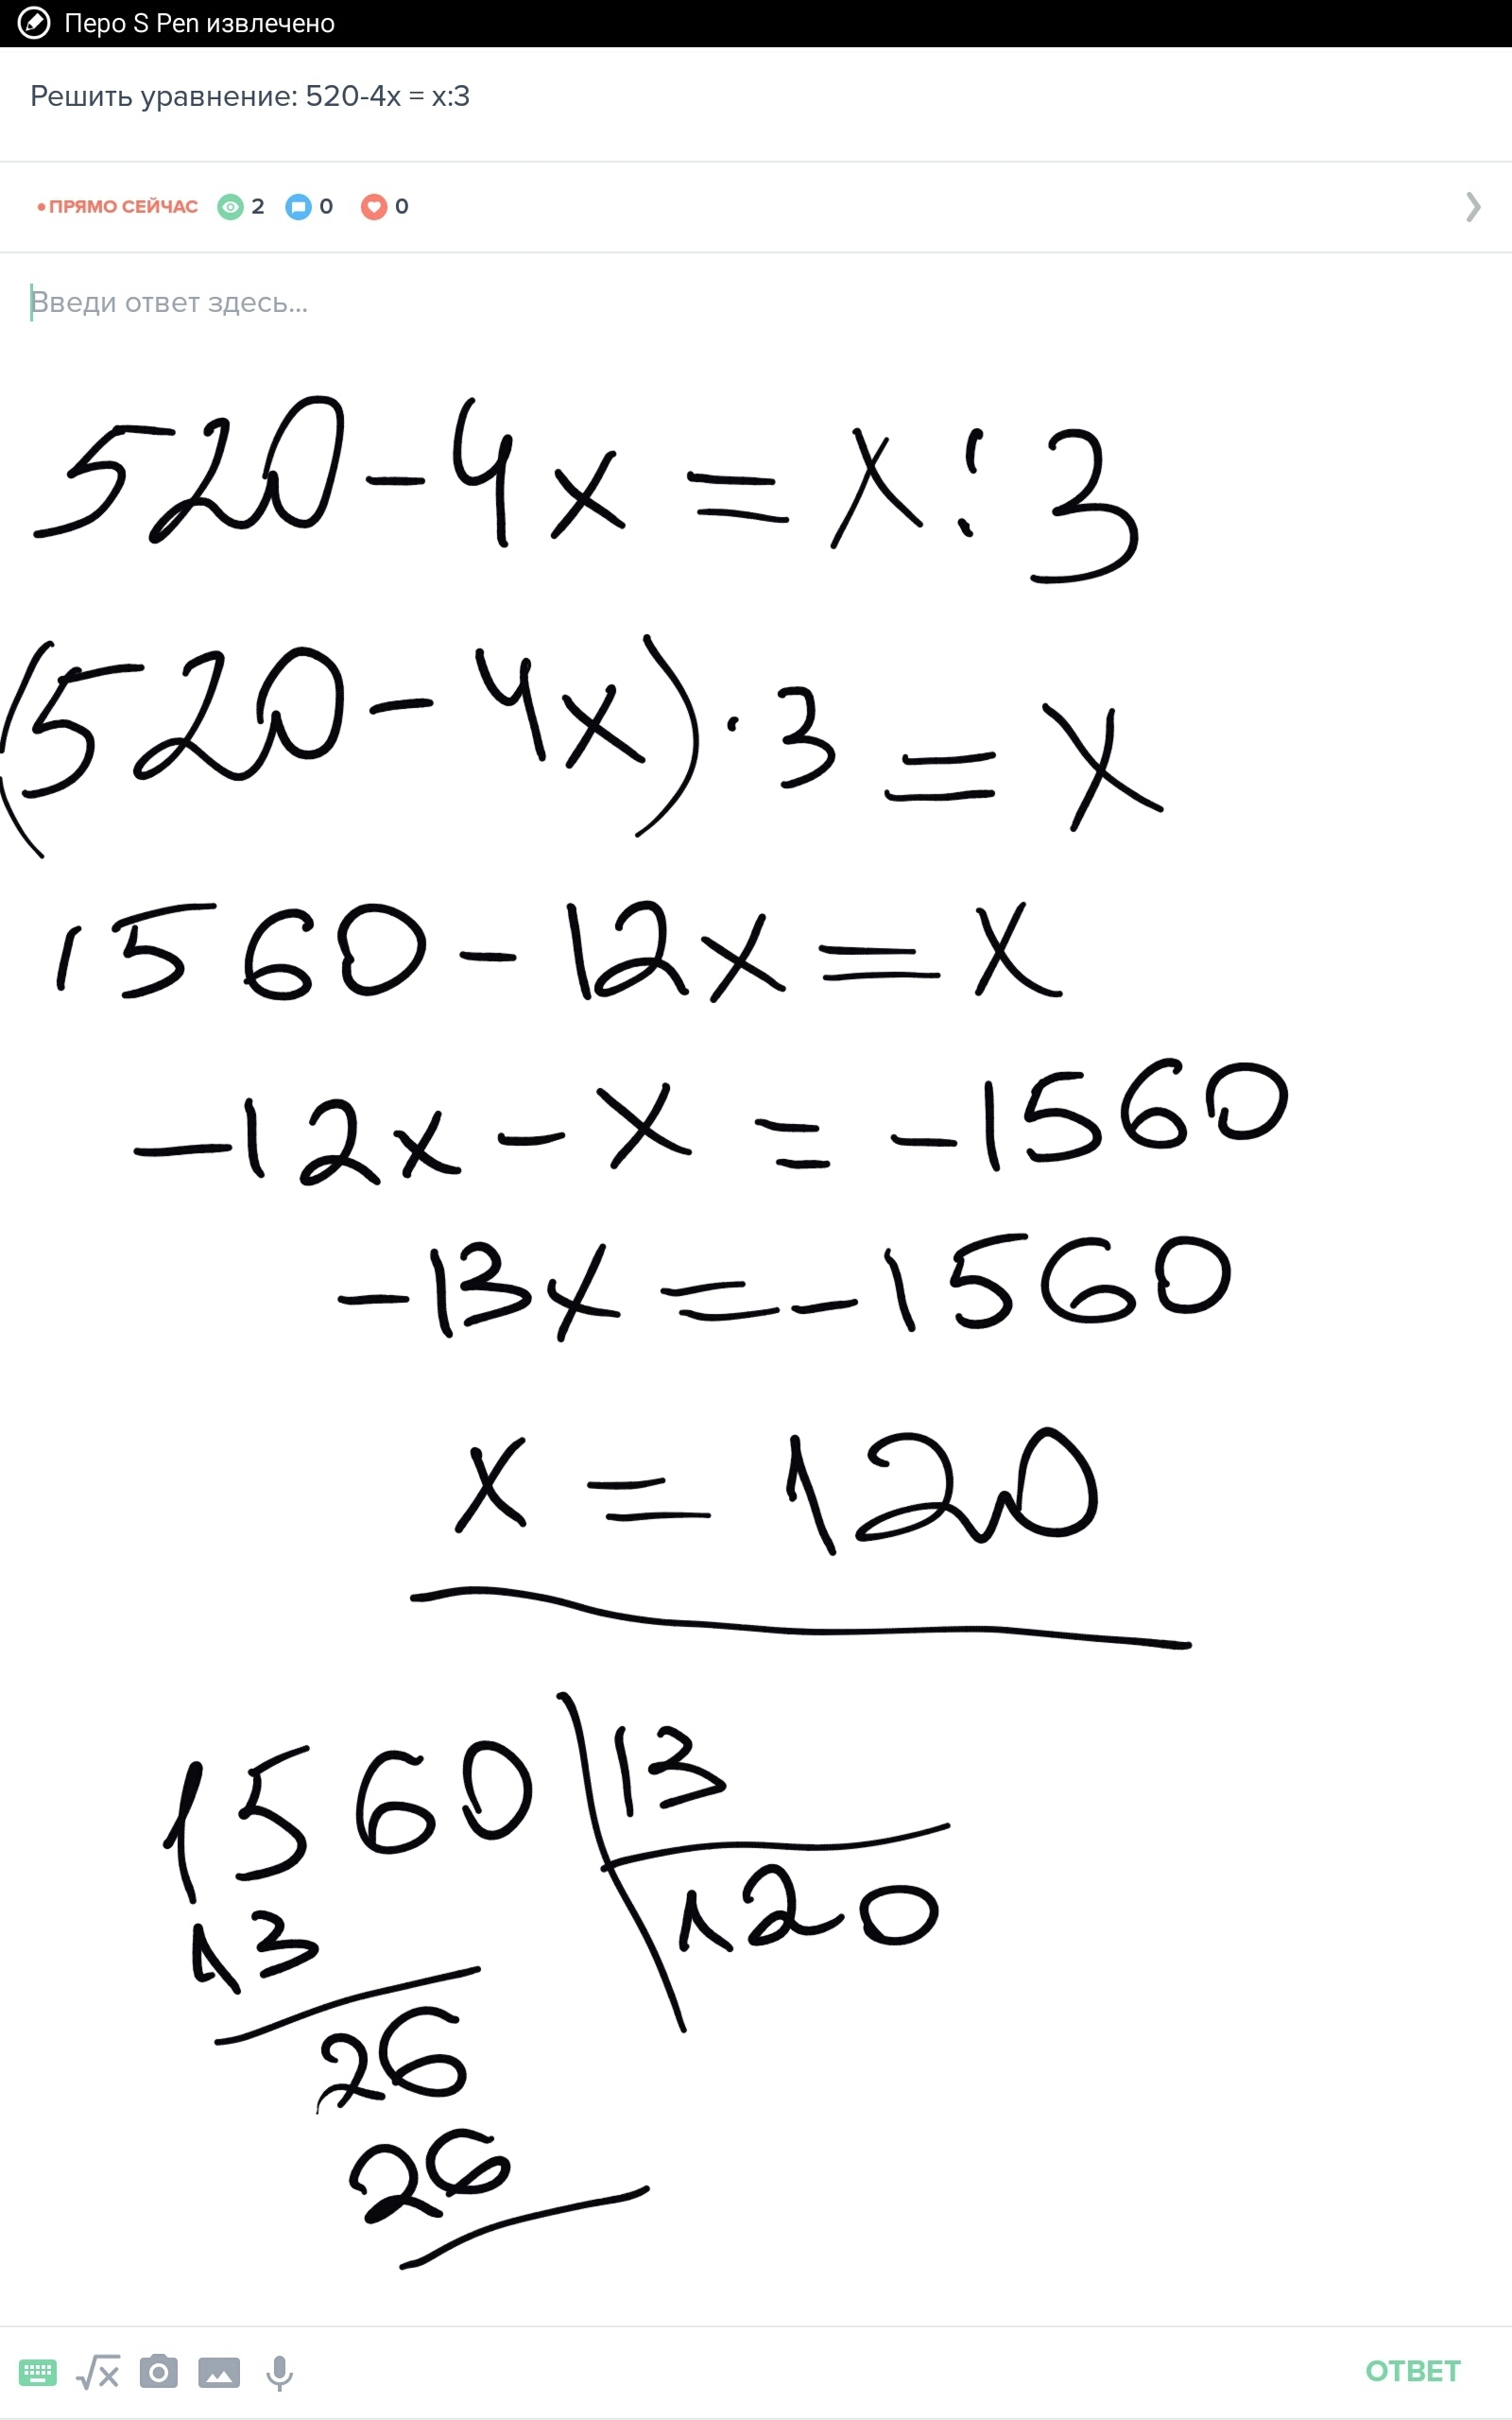 Перо S Pen извлечено
Решить уравнение: 520-4x = x:3
•ПРЯМО СЕЙЧАС 2 0 0
Введи ответ здесь...
520-4x = x:3
(520-4x)·3 = x
1560-12x=x
-12x-x = -1560
-13x=-1560
x = 120
1560 13
13 120
26
26
√x
ОТВЕТ